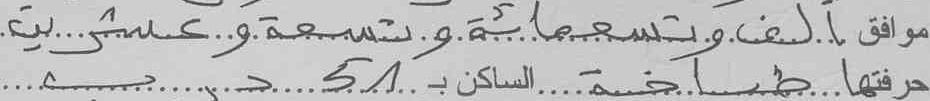 موافق ألف وتسعمائة وتسعة وعشرين
حرفتها طباخة الساكن بـ 51